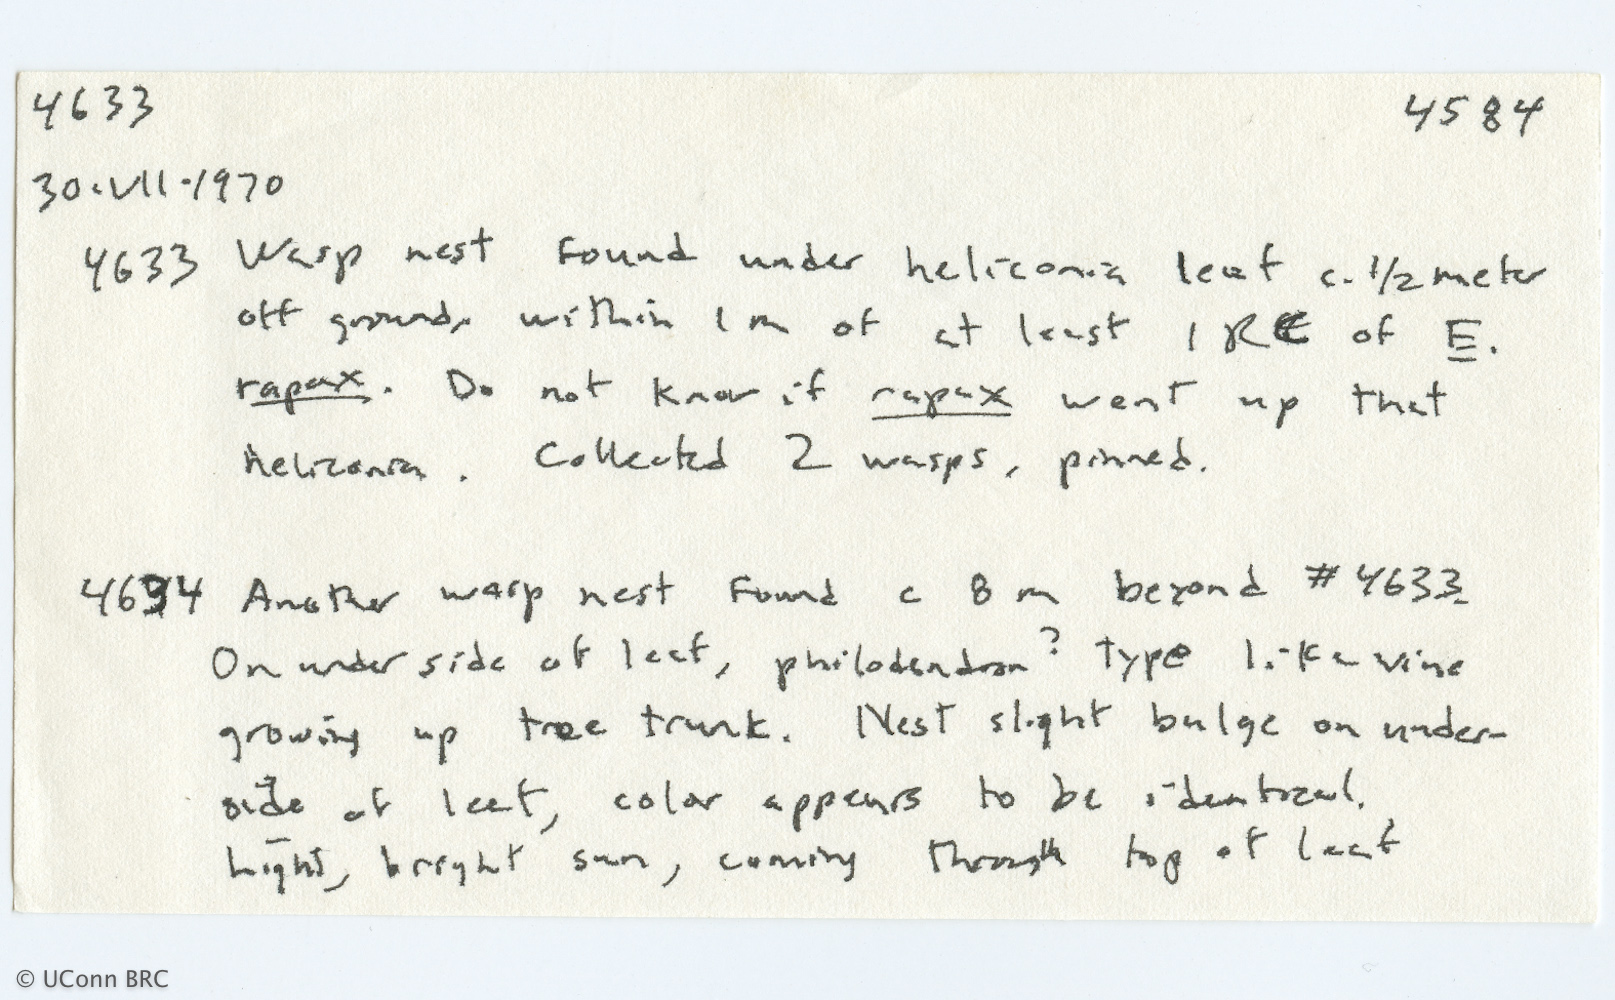 4633 4584
30.VII.1970
4633 Wasp nest found under heliconia leaf c. 1/2 meter
off ground, within 1 m of at least 1 RC of E.
rapax. Do not know if rapax went up that
heliconia. Collected 2 wasps, pinned.
4634 Another wasp nest found c 8 m beyond #4633.
On underside of leaf, philodendron? type like vine
growing up tree trunk. Nest slight bulge on under-
side of leaf, color appears to be identical.
Light, bright sun, coming through top of leaf
© UConn BRC